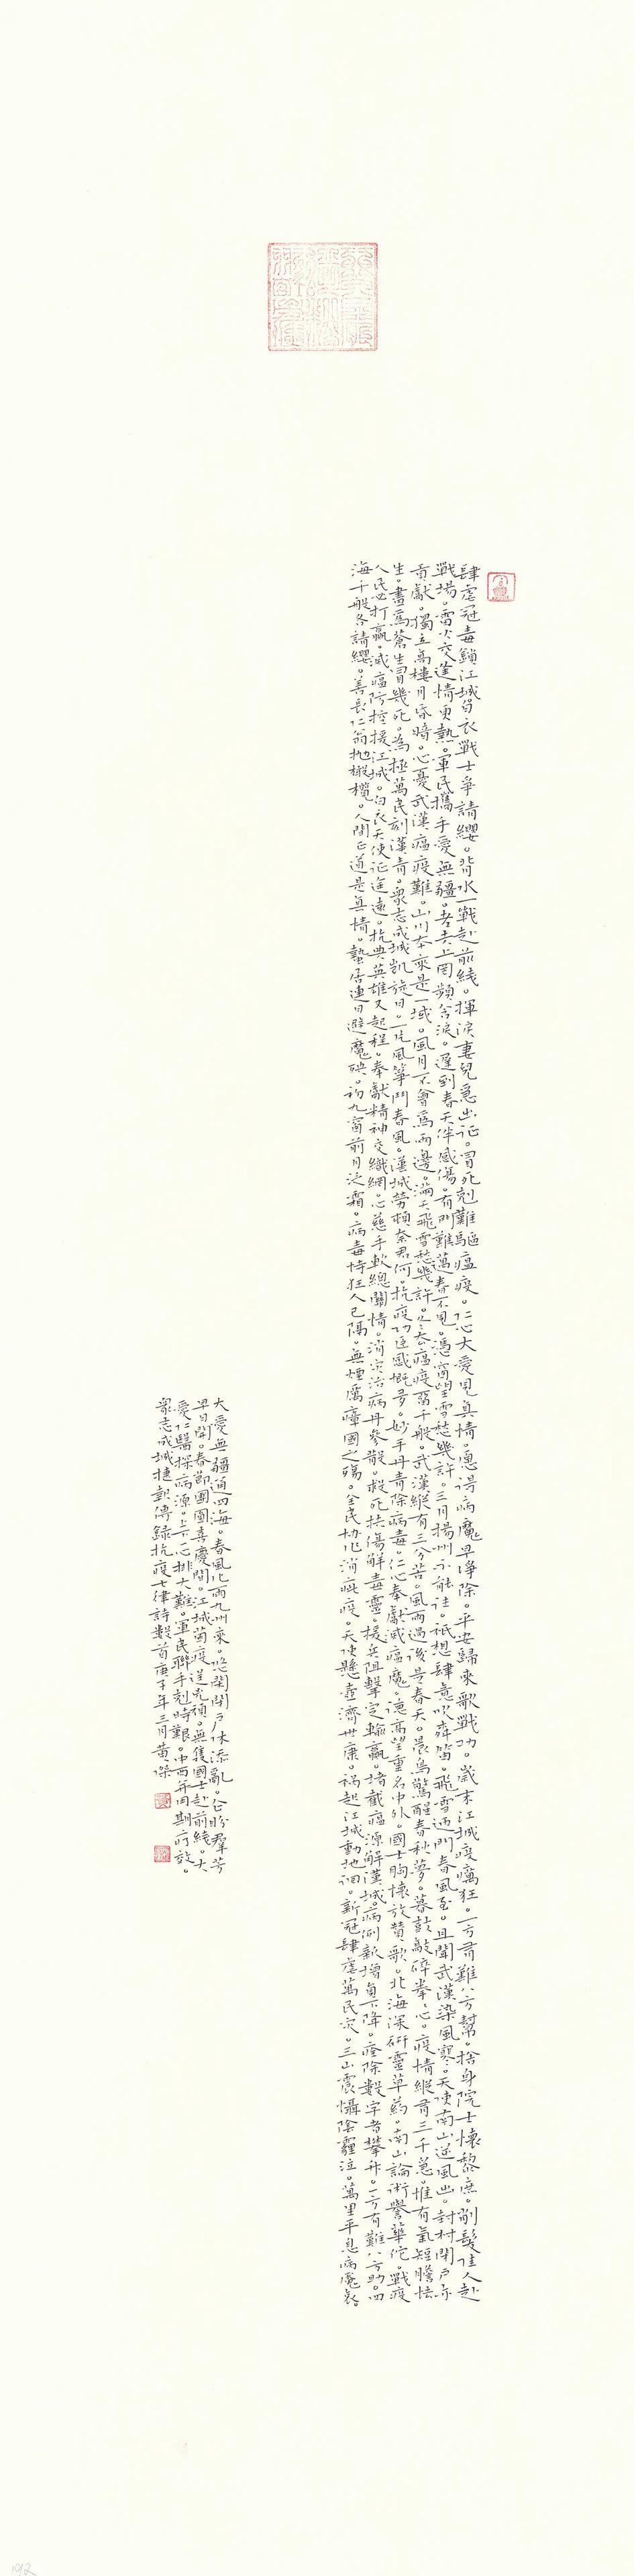 肆虐冠毒鎖江城。白衣戰士爭請纓。背水一戰赴前綫。揮淚妻兒急出征。冒死剋難驅瘟疫。仁心大愛見真情。惠得病魔早淨除。平安歸來歌戰功。歲末江城疫癘狂。一方有難八方幫。捨身院士懷黎庶。削髮佳人赴
戰場。雷火交逢情更熱。軍民攜手愛無疆。老去上罔頻含淚。遲到春天伴感傷。有門難邁春不見。憑窗望雪愁幾許。三月揚州不能往。祇想肆意吹舞笛。飛雪迎門春風至。且聞武漢染風寒。天使南山逆風出。封村閉戶亦
貢獻。獨立高樓月昏暗。心憂武漢瘟疫難。山川本來是一域。風月不會為兩邊。滿天飛雪愁幾許。冬春瘟疫習千般。武漢縱有三分苦。風雨過後是春天。晨鳥驚醒春秋夢。暮鼓敲碎拳心。疫情縱有三千急。惟有氣短膽怯
生。盡為蒼生冒幾死。為極萬民刻漢青。衆志成城凱旋日。一片風箏鬥春風。漢城勞頓奈君何。抗疫功臣感慨多。妙手丹青除病毒。仁心奉獻滅瘟魔。德高望重名中外。國士胸懷放贊歌。北海深研靈草藥。南山論術譽華佗。戰疫
人民必打贏。滅瘟防控援江城。白衣天使征途遠。抗典英雄又起程。奉獻精神交織網。心慈手軟總關情。消災治病丹參散。救死扶傷解毒靈。援兵阻擊定輸贏。堵截瘟源解漢城。病例新增負下降。痊除數字者攀升。一方有難八方助。四
海千般各請纓。善長仁翁拋橄欖。人間正道是真情。蟄居連日避魔殃。初九窗前月泛霜。病毒恃狂人已隔。無煙厲瘴國之殤。全民協作消疵疫。天使懸壺濟世康。禍起江城動地洄。新冠肆虐萬民災。三山震懾陰霾泣。萬里平息病魔哀。
大愛無疆通四海。春風化雨九州來。悠閑閉戶休添亂。企盼群芳
早日開。春節團圓喜慶間。江城菌疫逞兇頑。無雙國士赴前綫。大
愛仁醫探病源。上下一心排大難。軍民聯手剋時艱。中西年同期療效。
衆志成城捷報傳。錄抗疫七律詩數首庚子年三月黃傑
192